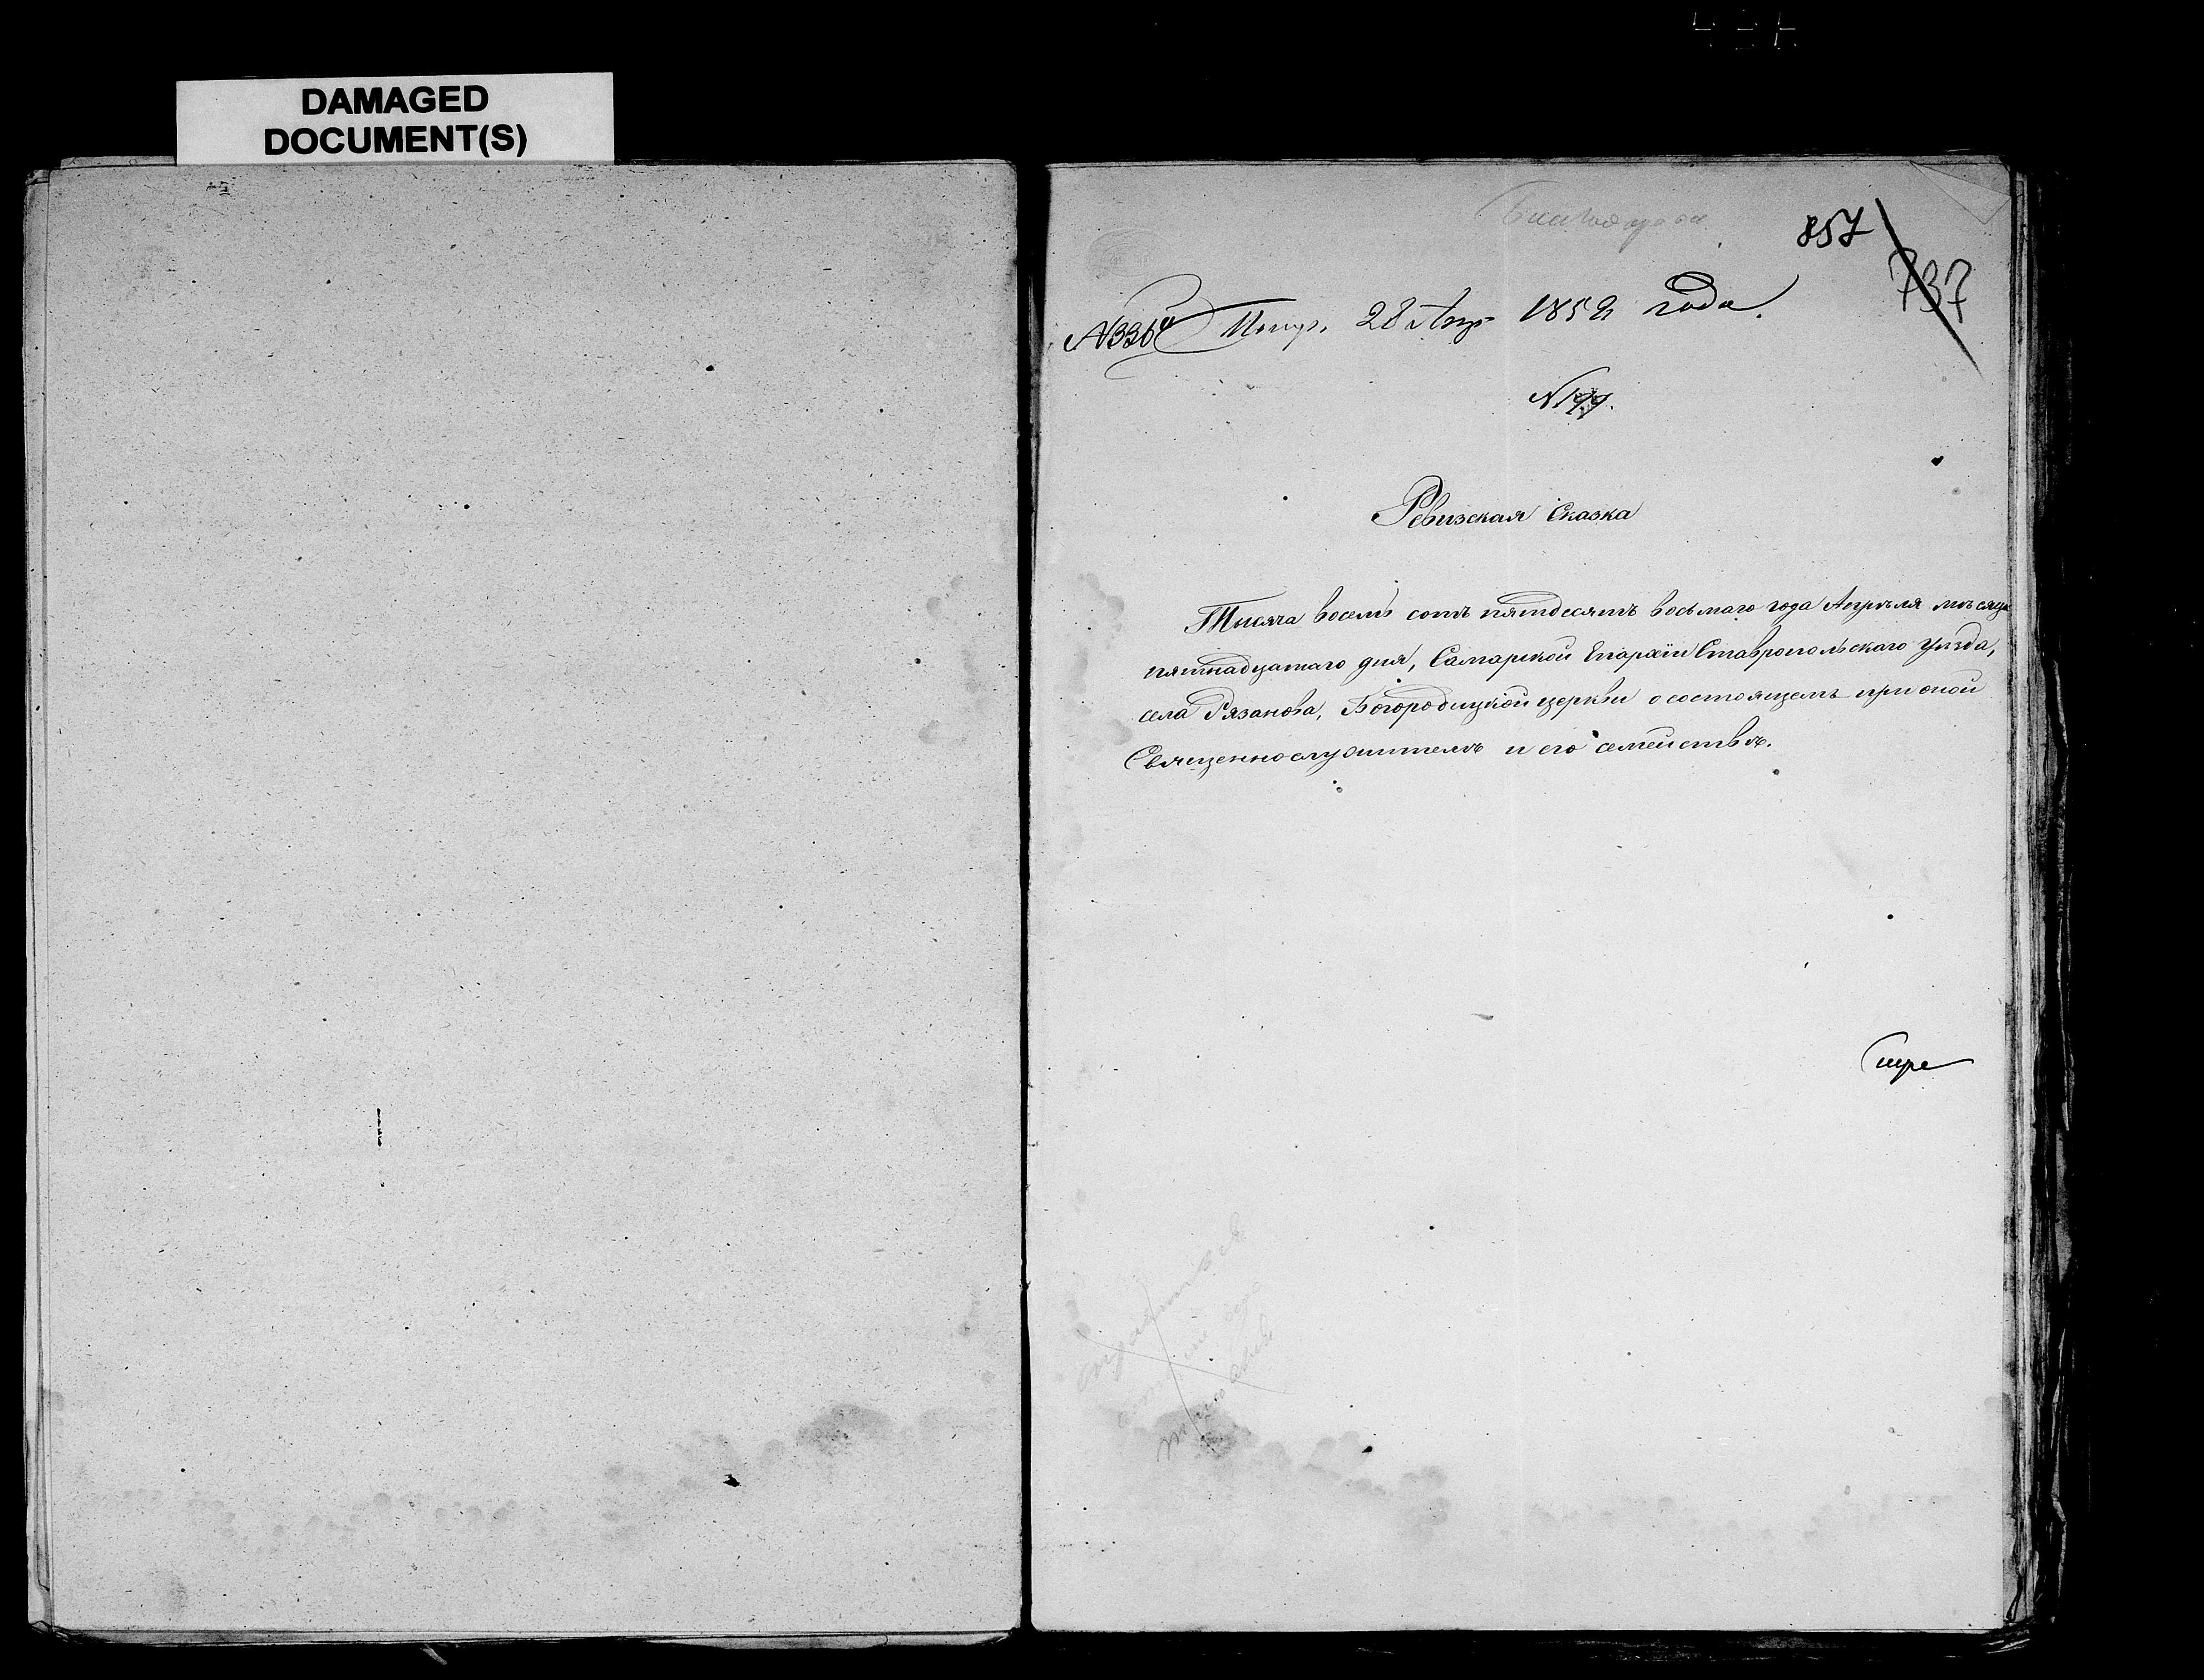 DAMAGED
DOCUMENT(S)
857
737
Получ. 28 Апр 1858 года.
N 199.
Ревизская Сказка
Тысяча восемь сотъ пятдесятъ восьмаго года Апрѣля мѣсяца
пятнадцатаго дня, Самарской Епархіи Ставропольскаго Уѣзда,
села Рязанова, Богородицкой церкви о состоящемъ при оной
Священнослужителѣ и его семействѣ.